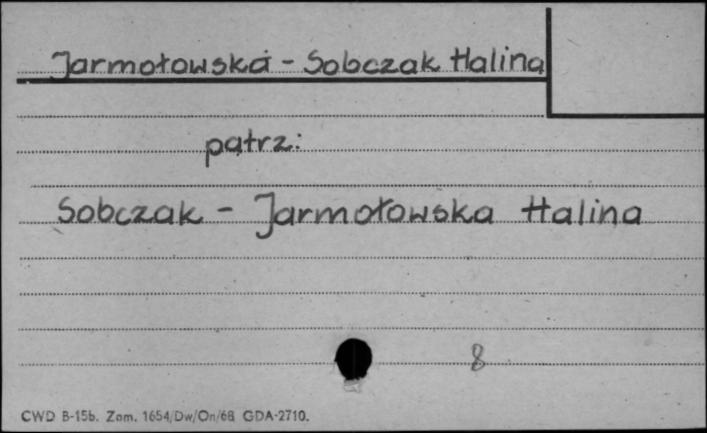 Jarmołowska - Sobczak Halina
patrz:
Sobczak - Jarmołowska Halina
8
CWD B-15b. Zam. 1654/Dw/On/68 GDA-2710.